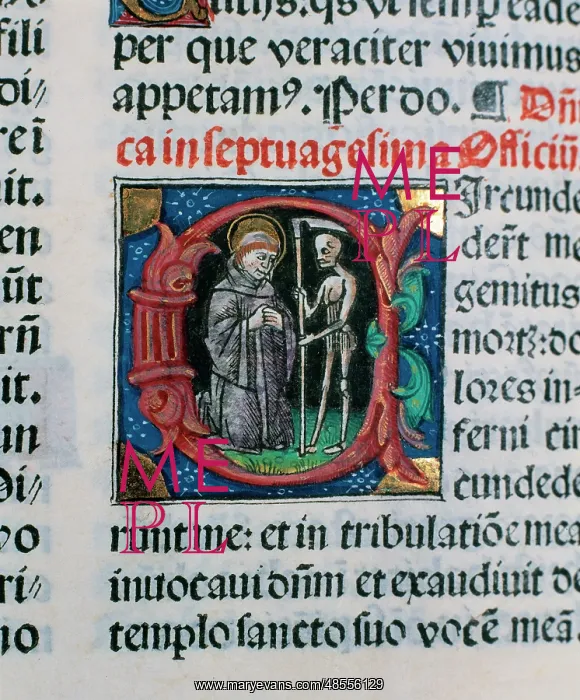 fili
di//
reī
it.
en
ūt
rn̄
it.
un
Di//
vo
ri//
no
per que veraciter viuimus
appetam⁹. Per do. ¶ Dn̄i
ca in septuagesima Officiū
Ircunde
der̄t me
gemitus
mortꝫ: do
lores in-
ferni cir
cundede
runt me: et in tribulatiōe mea
inuocaui dn̄m et exaudiuit de
templo sancto suo vocē meā.
ME
PL
ME
PL
www.maryevans.com/48556129